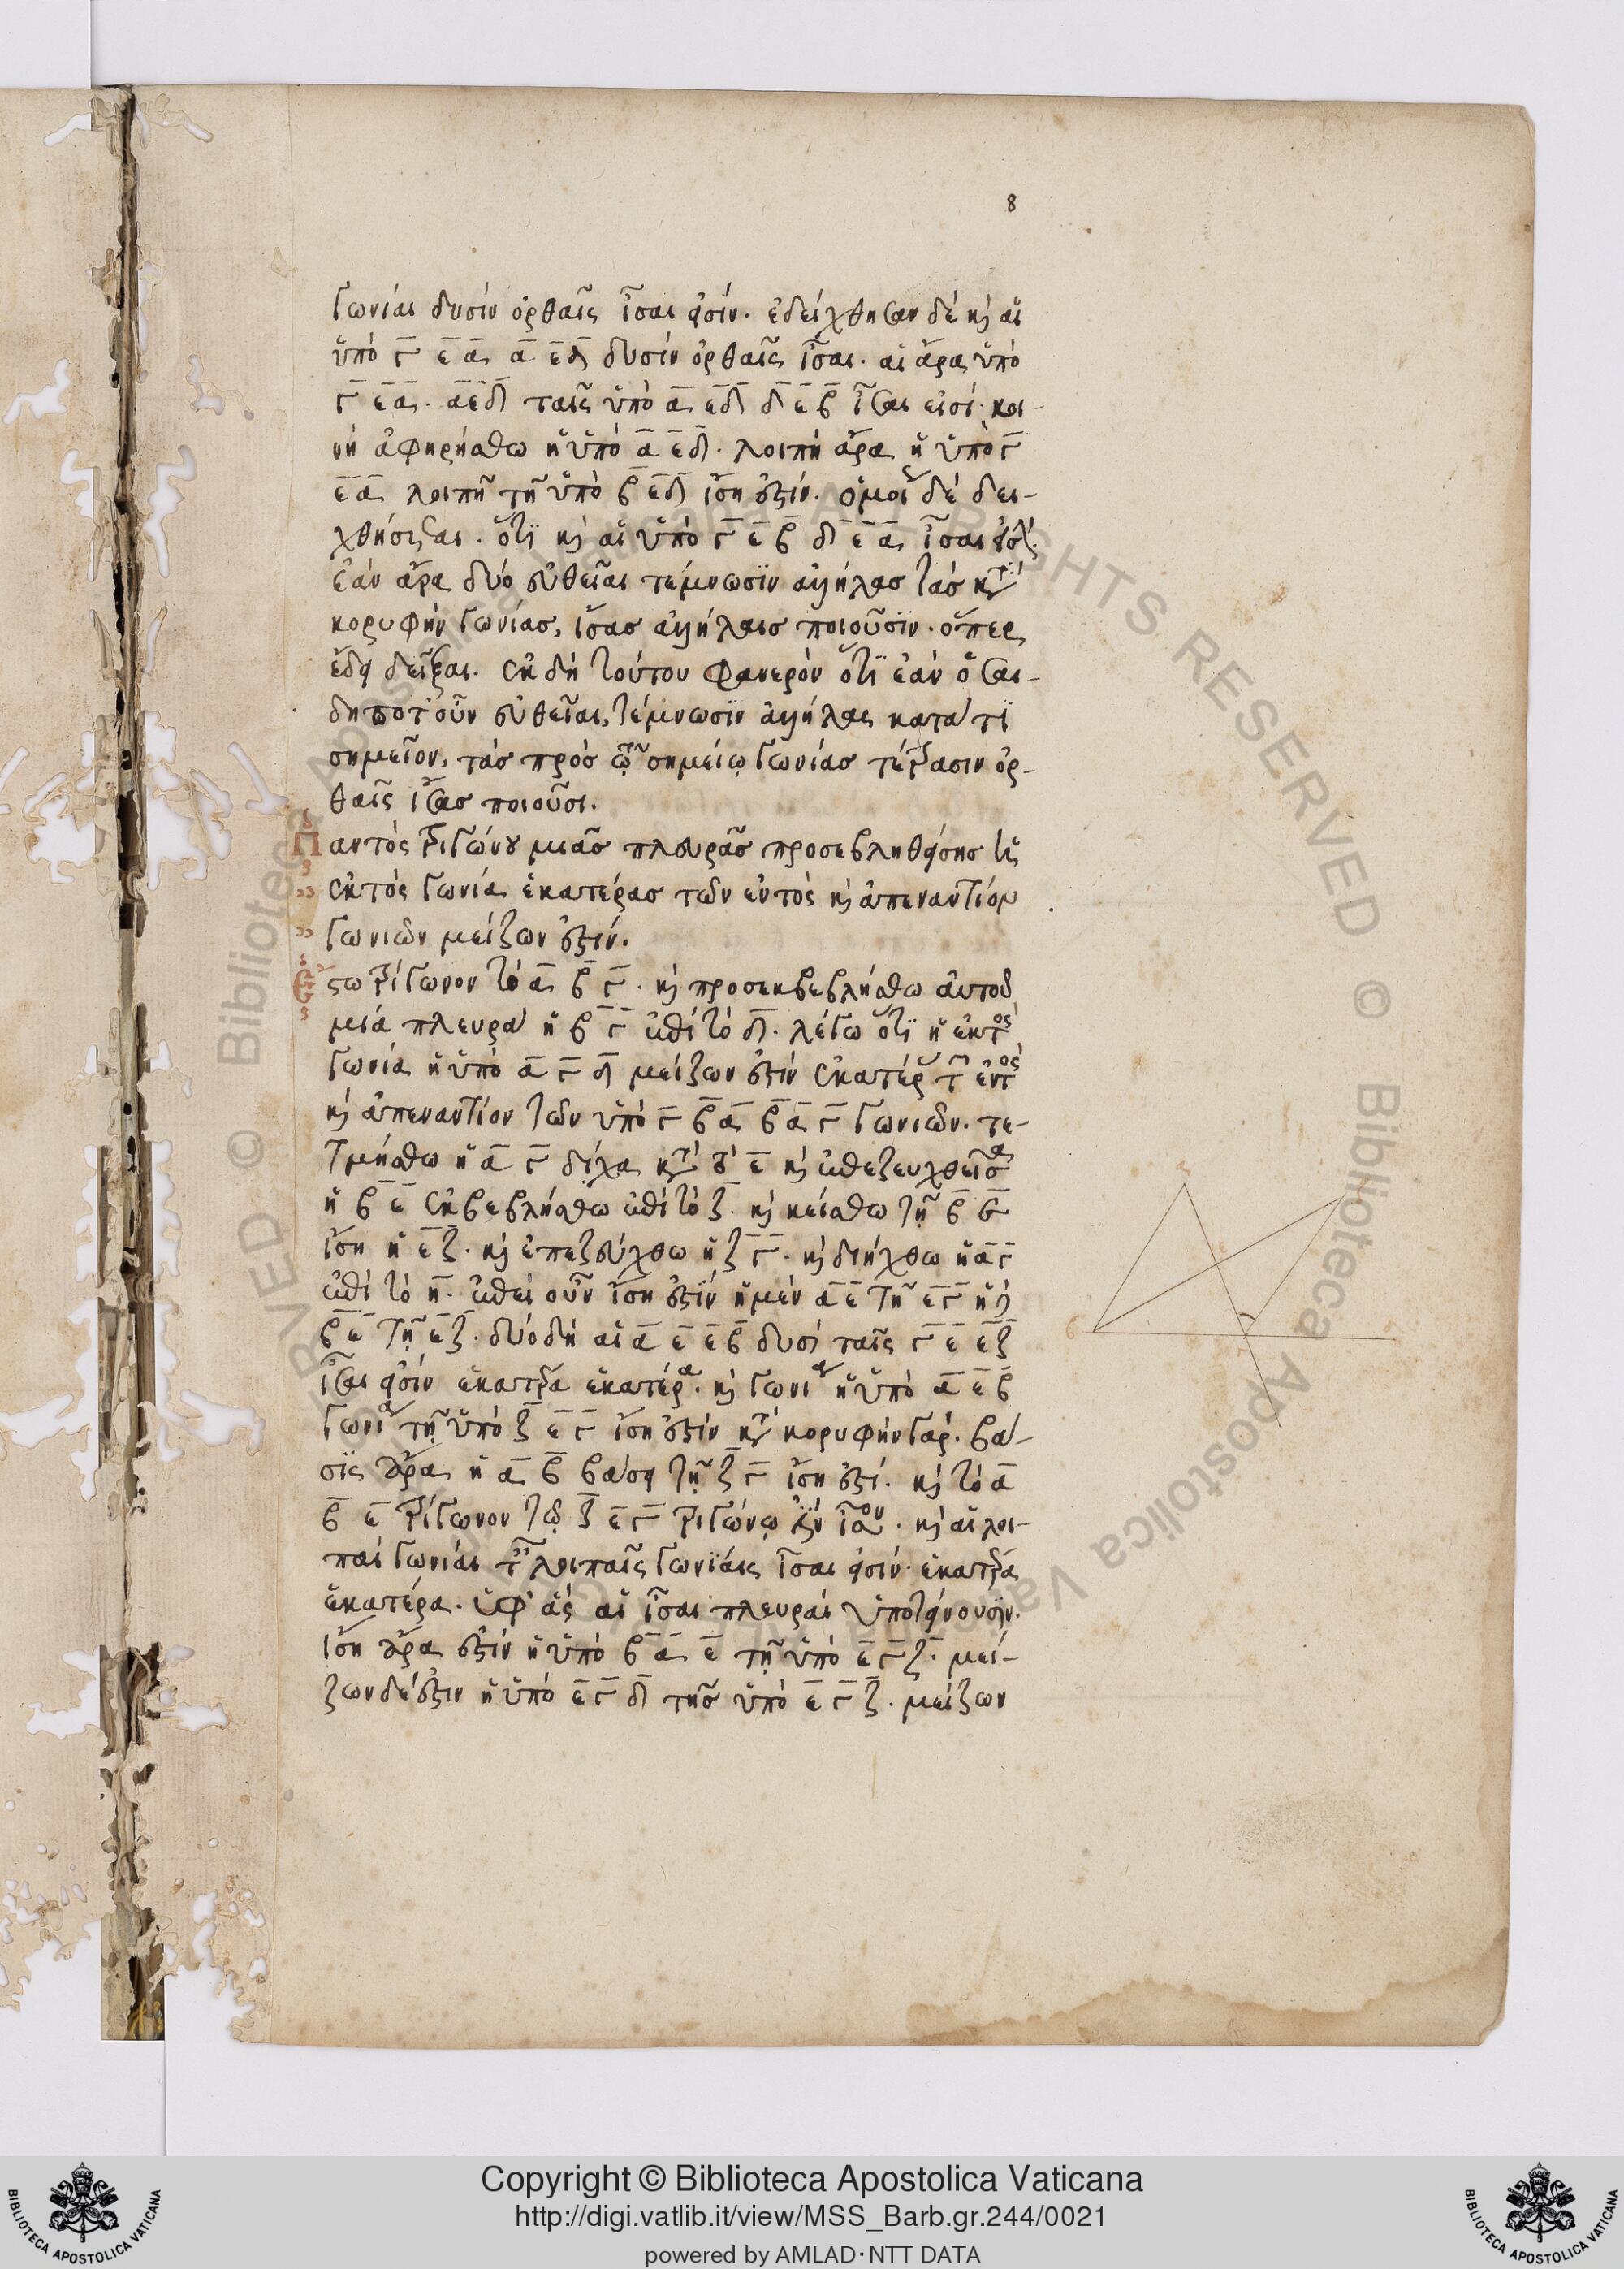 8
γωνίαι δυσὶν ὀρθαῖς ἴσαι εἰσίν. ἐδείχθησαν δὲ κ αἱ
ὑπὸ γ ε α α ε δ δυσὶν ὀρθαῖς ἴσαι. αἱ ἄρα ὑπὸ
γ ε α. α ε δ ταῖς ὑπὸ α ε δ δ ε β ἴσαι εἰσί. κοι-
νὴ ἀφῃρήσθω ἡ ὑπὸ α ε δ. λοιπὴ ἄρα ἡ ὑπὸ γ
ε α λοιπῇ τῇ ὑπὸ β ε δ ἴση ἐστίν. ὁμοί δὲ δει-
χθήσεται. ὅτι κ αἱ ὑπὸ γ ε β δ ε α ἴσαι εἰσί.
Ἐὰν ἄρα δύο εὐθεῖαι τέμνωσϊν ἀλλήλας τὰς κτ
κορυφὴν γωνίας, ἴσας ἀλλήλαις ποιοῦσϊν. ὅπερ
ἔδει δεῖξαι. ἐκ δὴ τούτου φανερὸν ὅτϊ ἐὰν ὅσαι-
δηποτ' οὖν εὐθεῖαι, τέμνωσϊν ἀλλήλας κατὰ τϊ
σημεῖον, τὰς πρὸς τῷ σημείῳ γωνίας τέτρασιν ὀρ-
θαῖς ἴσας ποιοῦσι.
Παντὸς τριγώνου μιᾶς πλευρᾶς προσεβληθείσης ἡ
ἐκτὸς γωνία ἑκατέρας τῶν ἐντὸς κ ἀπεναντίον
γωνιῶν μείζων ἐστίν.
Ἔστω τρίγωνον τὸ α β γ. κ προσεκβεβλήσθω αὐτοῦ
μία πλευρὰ ἡ β γ ἐπὶ τὸ δ. λέγω ὅτϊ ἡ ἐκτὸς
γωνία ἡ ὑπὸ α γ δ μείζων ἐστὶν ἑκατέρ τ ἐντὸς
κ ἀπεναντίον τῶν ὑπὸ γ β α β α γ γωνιῶν. τε-
τμήσθω ἡ α γ δίχα κτ τὸ ε κ ἐπεζευχθεῖσα
ἡ β ε ἐκβεβλήσθω ἐπὶ τὸ ζ. κ κείσθω τῇ β ε
ἴση ἡ ε ζ. κ ἐπεζεύχθω ἡ ζ γ. κ διήχθω ἡ α γ
ἐπὶ τὸ η. ἐπεὶ οὖν ἴση ἐστὶν ἡ μὲν α ε τῇ ε γ ἡ δ
β ε τῇ ε ζ. δύο δὴ αἱ α ε ε β δυσὶ ταῖς γ ε ε ζ
ἴσαι εἰσὶν ἑκατέρα ἑκατέρα. κ γωνία ἡ ὑπὸ α ε β
γωνία τῇ ὑπὸ ζ ε γ ἴση ἐστὶν κτ κορυφὴν γάρ. βά-
σϊς ἄρα ἡ α β βάσει τῇ ζ γ ἴση ἐστί. κ τὸ α
β ε τρίγωνον τῷ ζ ε γ τριγώνῳ ἐστὶν ἴσον. κ αἱ λοι-
παὶ γωνίαι τ λοιπαῖς γωνϊάις ἴσαι εἰσίν. ἑκατέρα
ἑκατέρα. ὑφ' ἃς αἱ ἴσαι πλευραὶ ὑποτείνουσϊν.
ἴση ἄρα ἐστὶν ἡ ὑπὸ β α ε τῇ ὑπὸ ε γ ζ. μεί-
ζων δέ ἐστιν ἡ ὑπὸ ε γ δ τῆς ὑπὸ ε γ ζ. μείζων
Copyright © Biblioteca Apostolica Vaticana
http://digi.vatlib.it/view/MSS_Barb.gr.244/0021
powered by AMLAD · NTT DATA
BIBLIOTECA APOSTOLICA VATICANA
BIBLIOTECA APOSTOLICA VATICANA